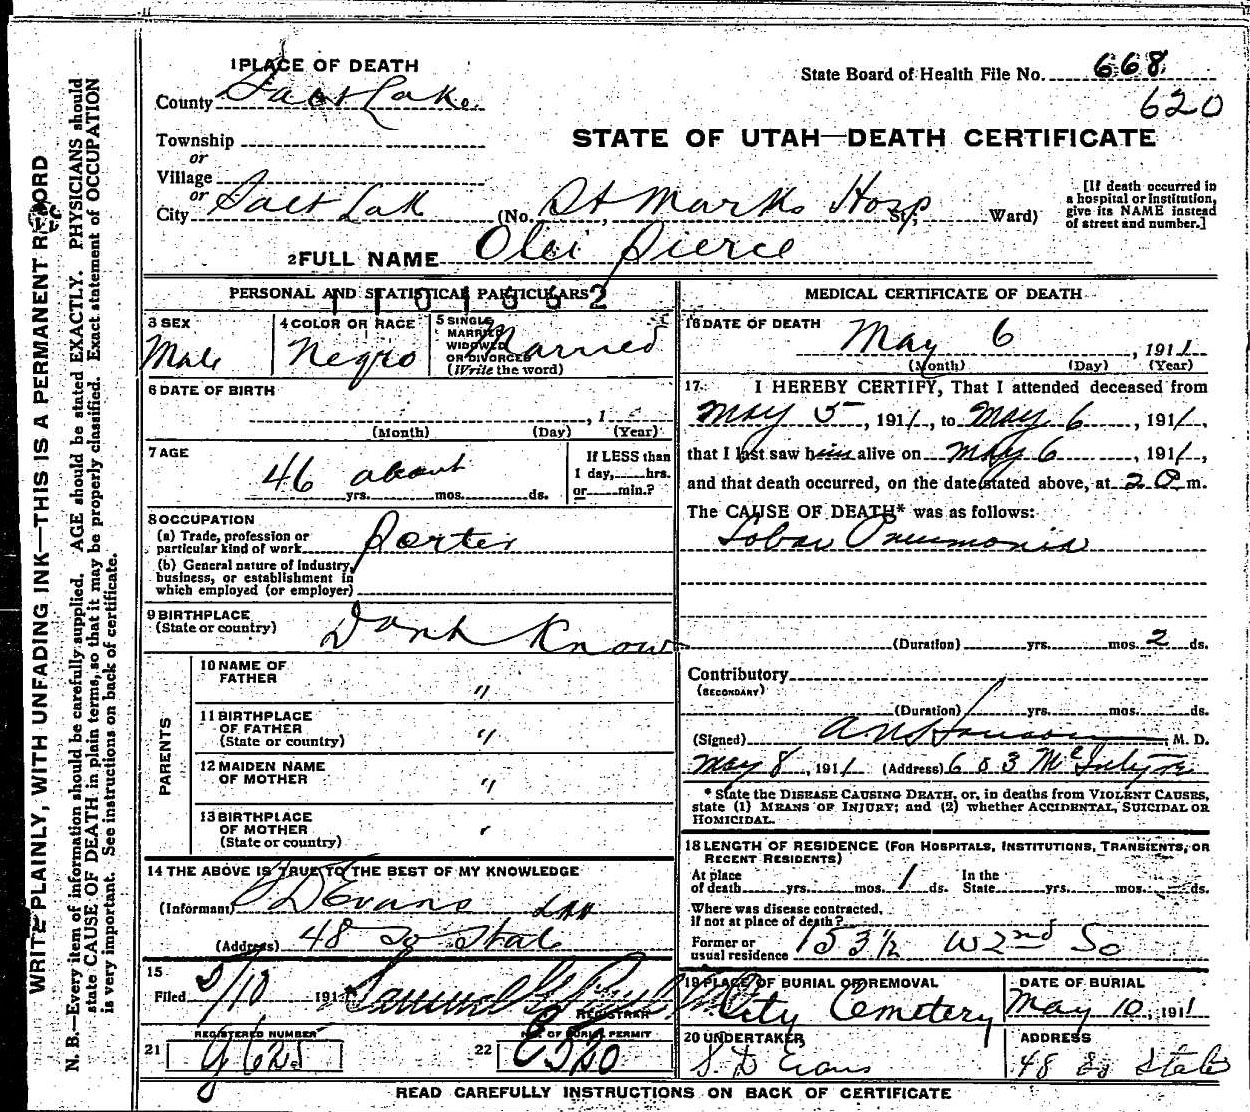 1 PLACE OF DEATH
State Board of Health File No. 668
620
County Salt Lake
STATE OF UTAH—DEATH CERTIFICATE
Township
or
Village
or
City Salt Lak (No. St Marks Hosp St; Ward)
[If death occurred in a hospital or institution, give its NAME instead of street and number.]
2 FULL NAME Pierce
PERSONAL AND STATISTICAL PARTICULARS
3 SEX Male
4 COLOR OR RACE Negro
5 SINGLE MARRIED WIDOWED OR DIVORCED (Write the word) Married
6 DATE OF BIRTH
, 1
(Month) (Day) (Year)
7 AGE 46 about
yrs. mos. ds.
If LESS than 1 day, hrs. or min.?
8 OCCUPATION
(a) Trade, profession or particular kind of work Porter
(b) General nature of industry, business, or establishment in which employed (or employer)
9 BIRTHPLACE (State or country) Dont Know
PARENTS
10 NAME OF FATHER "
11 BIRTHPLACE OF FATHER (State or country) "
12 MAIDEN NAME OF MOTHER "
13 BIRTHPLACE OF MOTHER (State or country)
14 THE ABOVE IS TRUE TO THE BEST OF MY KNOWLEDGE
(Informant) S D Evans
(Address) 48 So State
15
Filed 5/10 191 Samuel G Paul
REGISTRAR
REGISTERED NUMBER
21
NO. OF BURIAL PERMIT
22 E 520
MEDICAL CERTIFICATE OF DEATH
16 DATE OF DEATH
May 6, 1911
(Month) (Day) (Year)
17. I HEREBY CERTIFY, That I attended deceased from
May 5, 1911, to May 6, 1911,
that I last saw him alive on May 6, 1911,
and that death occurred, on the date stated above, at 2 P m.
The CAUSE OF DEATH* was as follows:
Lobar Pneumonia
(Duration) yrs. mos. 2 ds.
Contributory
(SECONDARY)
(Duration) yrs. mos. ds.
(Signed) A N Hanson M. D.
May 8, 1911 (Address) 603 McIntyre
* State the DISEASE CAUSING DEATH, or, in deaths from VIOLENT CAUSES, state (1) MEANS OF INJURY; and (2) whether ACCIDENTAL, SUICIDAL OR HOMICIDAL.
18 LENGTH OF RESIDENCE (FOR HOSPITALS, INSTITUTIONS, TRANSIENTS, OR RECENT RESIDENTS)
At place of death yrs. mos. 1 ds. In the State yrs. mos. ds.
Where was disease contracted, if not at place of death?
Former or usual residence 153 1/2 W 2nd So
19 PLACE OF BURIAL OR REMOVAL
City Cemetery
DATE OF BURIAL
May 10, 1911
20 UNDERTAKER
S. D Evans
ADDRESS
48 So State
READ CAREFULLY INSTRUCTIONS ON BACK OF CERTIFICATE
WRITE PLAINLY, WITH UNFADING INK—THIS IS A PERMANENT RECORD
N. B.—Every item of information should be carefully supplied. AGE should be stated EXACTLY. PHYSICIANS should
state CAUSE OF DEATH in plain terms, so that it may be properly classified. Exact statement of OCCUPATION
is very important. See instructions on back of certificate.